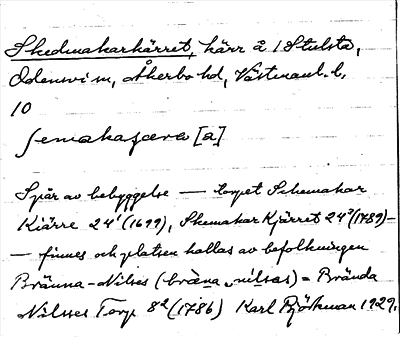 Skedmakarkärret, kärr å 1 Stulsta,
Odensvi sn, Åkerbo hd, Västmanl. l.
10
[a]
Spår av bebyggelse — torpet Schemakar
Kiärre 24¹ (1699), Skemakar Kjärret 24⁷ (1789) –
— finnes och platsen kallas av befolkningen
Bränna-Nilses (bräna nilsas) = Brända
Nilses Torp 8² (1786) Karl Björkman 1929.